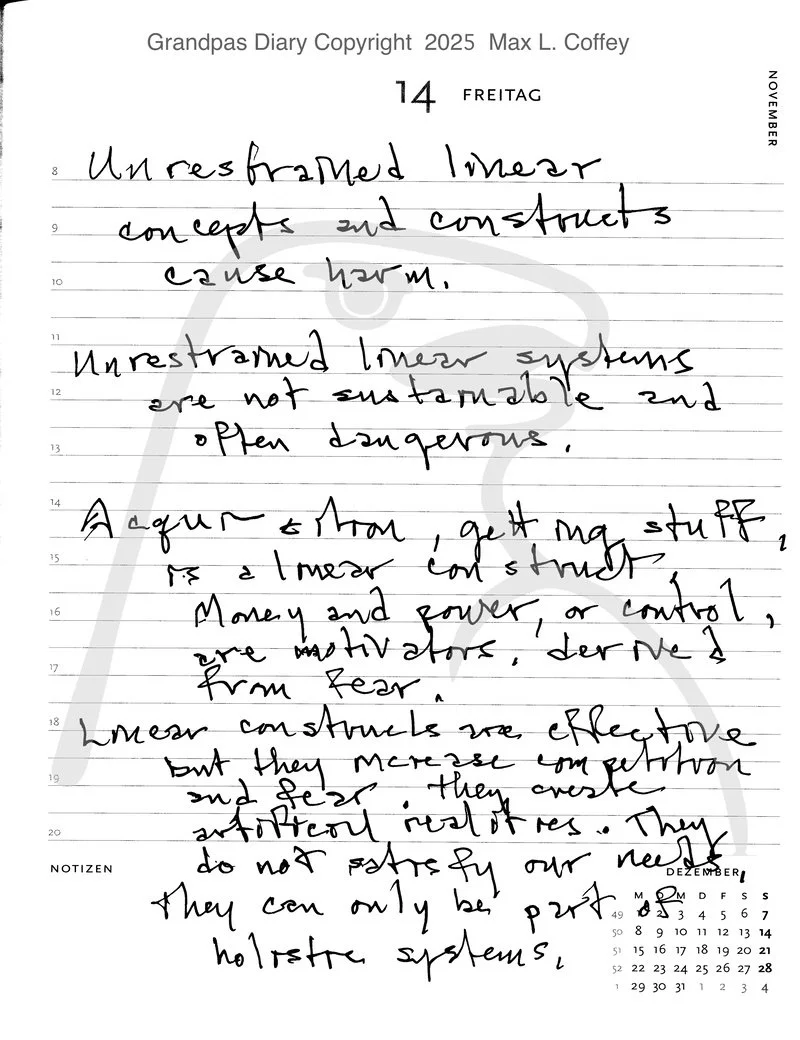 Grandpas Diary Copyright 2025 Max L. Coffey
14 FREITAG
NOVEMBER
8 Unrestrained linear
9 concepts and constructs
10 cause harm.
11 Unrestrained linear systems
12 are not sustainable and
13 often dangerous.
14 Acquisition, getting stuff,
15 is a linear construct.
16 Money and power, or control,
are motivators, derived
17 from fear.
18 Linear constructs are effective
but they increase competition
19 and fear. They create
artificial realities. They
20 do not satisfy our needs,
They can only be part of
holistic systems.
NOTIZEN
DEZEMBER
M D M D F S S
49 1 2 3 4 5 6 7
50 8 9 10 11 12 13 14
51 15 16 17 18 19 20 21
52 22 23 24 25 26 27 28
1 29 30 31 1 2 3 4